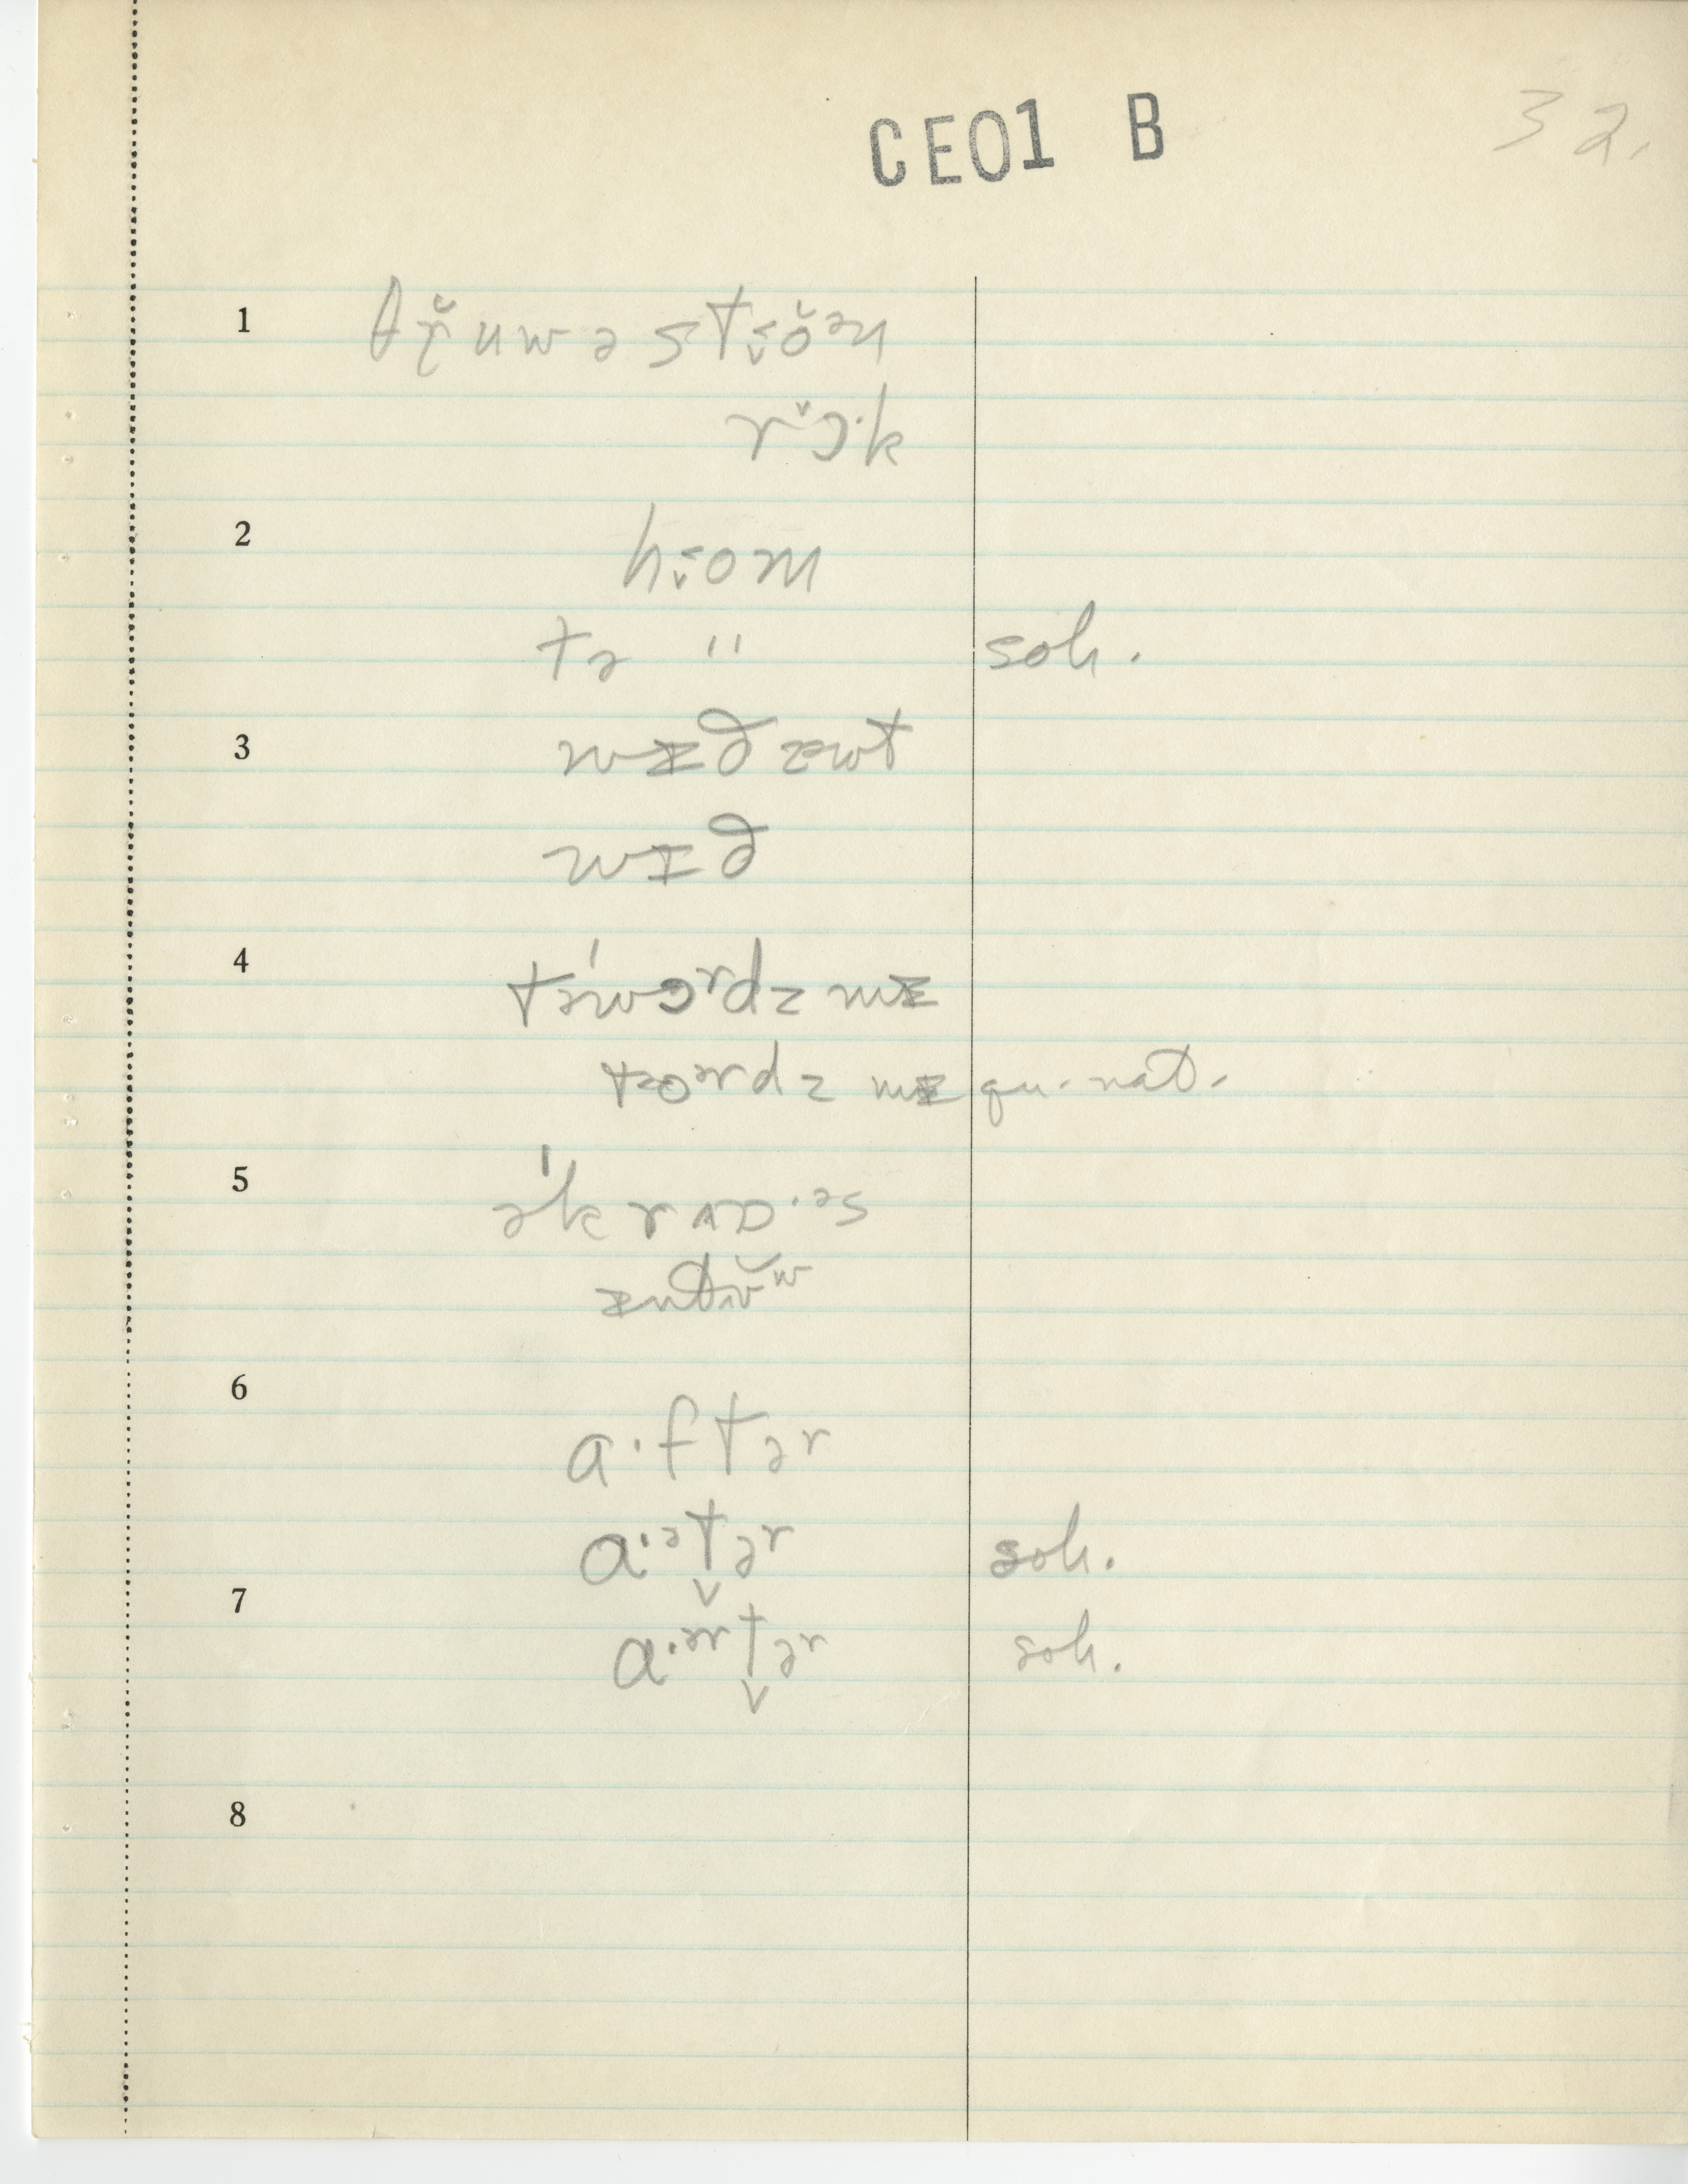 CE01 B
32.
1 θr̥̆uwə st⪽ŏən
rˇɔ·k
2 h⪽om
tə " soh.
3 wɪð æwt
wɪð
4 tə'wɔrdz mɪ
toərdz mɪ qu. nat.
5 ə'krɒ·əs
ɪntŭʷ
6 a·ftər
a·ᵊt̬ər soh.
7 a·ᵊʳt̬ər soh.
8